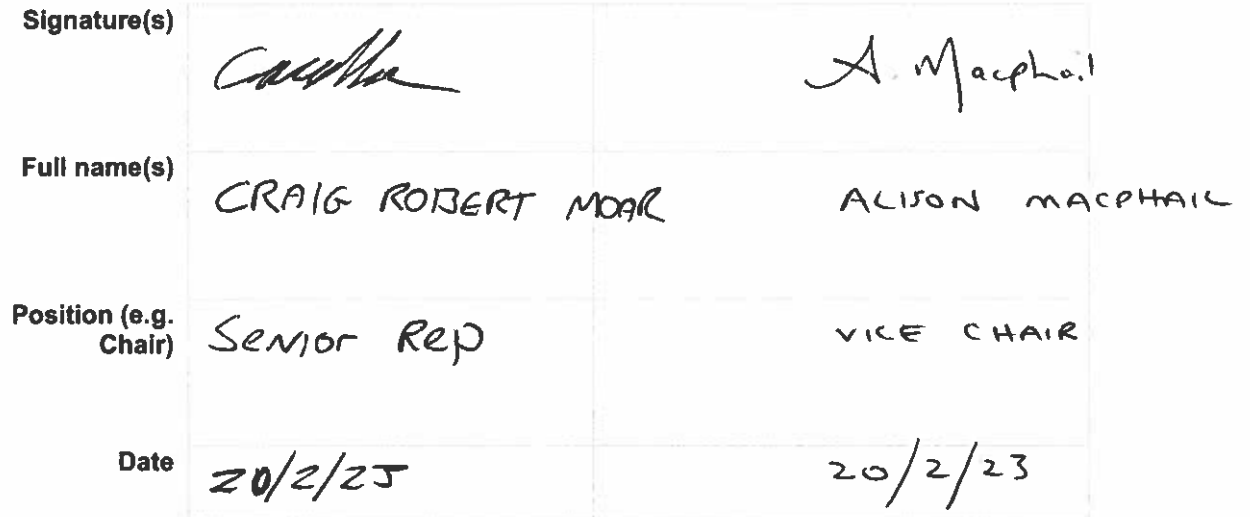 Signature(s)
A. Macphail
Full name(s) CRAIG ROBERT MOAR ALISON MACPHAIL
Position (e.g. Chair) Senior Rep VICE CHAIR
Date 20/2/23